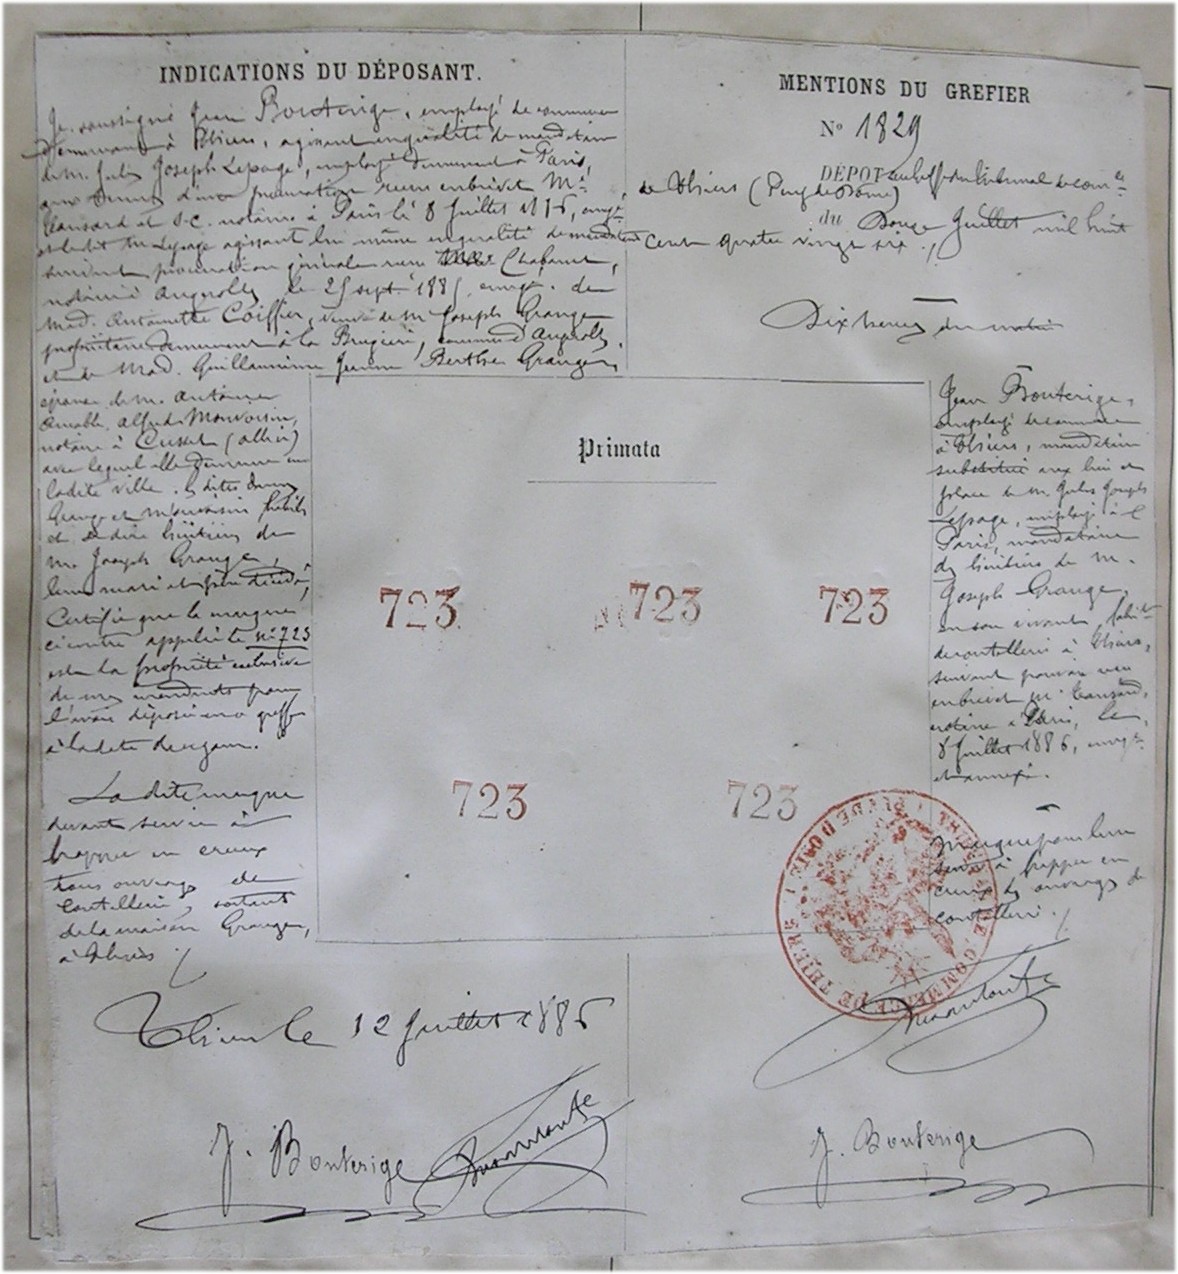 INDICATIONS DU DÉPOSANT.
Je soussigné Jean Bouterige, employé de commerce
demeurant à Thiers, agissant en qualité de mandataire
de M. Jules Joseph Lepage, employé demeurant à Paris,
aux termes d'une procuration reçue en brevet Me
et s.c. notaires à Paris le 8 Juillet 1886, enregt.
et ledit M. Lepage agissant lui même en qualité de mandataire
suivant procuration générale reçue Me Chabanet,
notaire à Augerolles le 25 sept. 1885, enregt. de
Mad. Antoinette Coiffier, veuve de M. Joseph Grange
propriétaire demeurant à la Brugière, commune d'Augerolles,
et de Mad. Guillaumine Jeanne Berthe Grange,
épouse de M. Antoine
Amable Alfred Mouvoisin,
notaire à Cusset (allier)
avec lequel elle demeure en
ladite ville. les dites Dames
Grange et Mouvoisin, habiles
et se dire héritières de
M. Joseph Grange,
leur mari et père décédé,
Certifie que la marque
ci contre appelée le n° 723
est la propriété exclusive
de mes mandants pour
l'avoir déposée au greffe
à la date de ce jour.
La dite marque
devant servir à
frapper en creux
tous ouvrages de
coutellerie, sortant
de la maison Grange,
à Thiers
Thiers le 12 Juillet 1886
J. Bouterige
MENTIONS DU GREFIER
N° 1829
DÉPOT au greffe du tribunal de comce
de Thiers (Puy de Dôme)
du Douze Juillet mil huit
cent quatre vingt six,
Dix heures du matin
Primata
723 723 723
723 723
Jean Bouterige,
employé de commerce
à Thiers, mandataire
substitué aux lieu et
place de M. Jules Joseph
Lepage, employé à
Paris, mandataire
des héritiers de M.
Joseph Grange,
en son vivant, fabt
de coutellerie à Thiers,
suivant pouvoir reçu
en brevet Me
notaire à Paris, le
8 Juillet 1886, enregt
et annexé.
Marque pour leur
servir à frapper en
creux les ouvrages de
coutellerie.
COMMERCE DE THIERS
PUY DE DOME
J. Bouterige